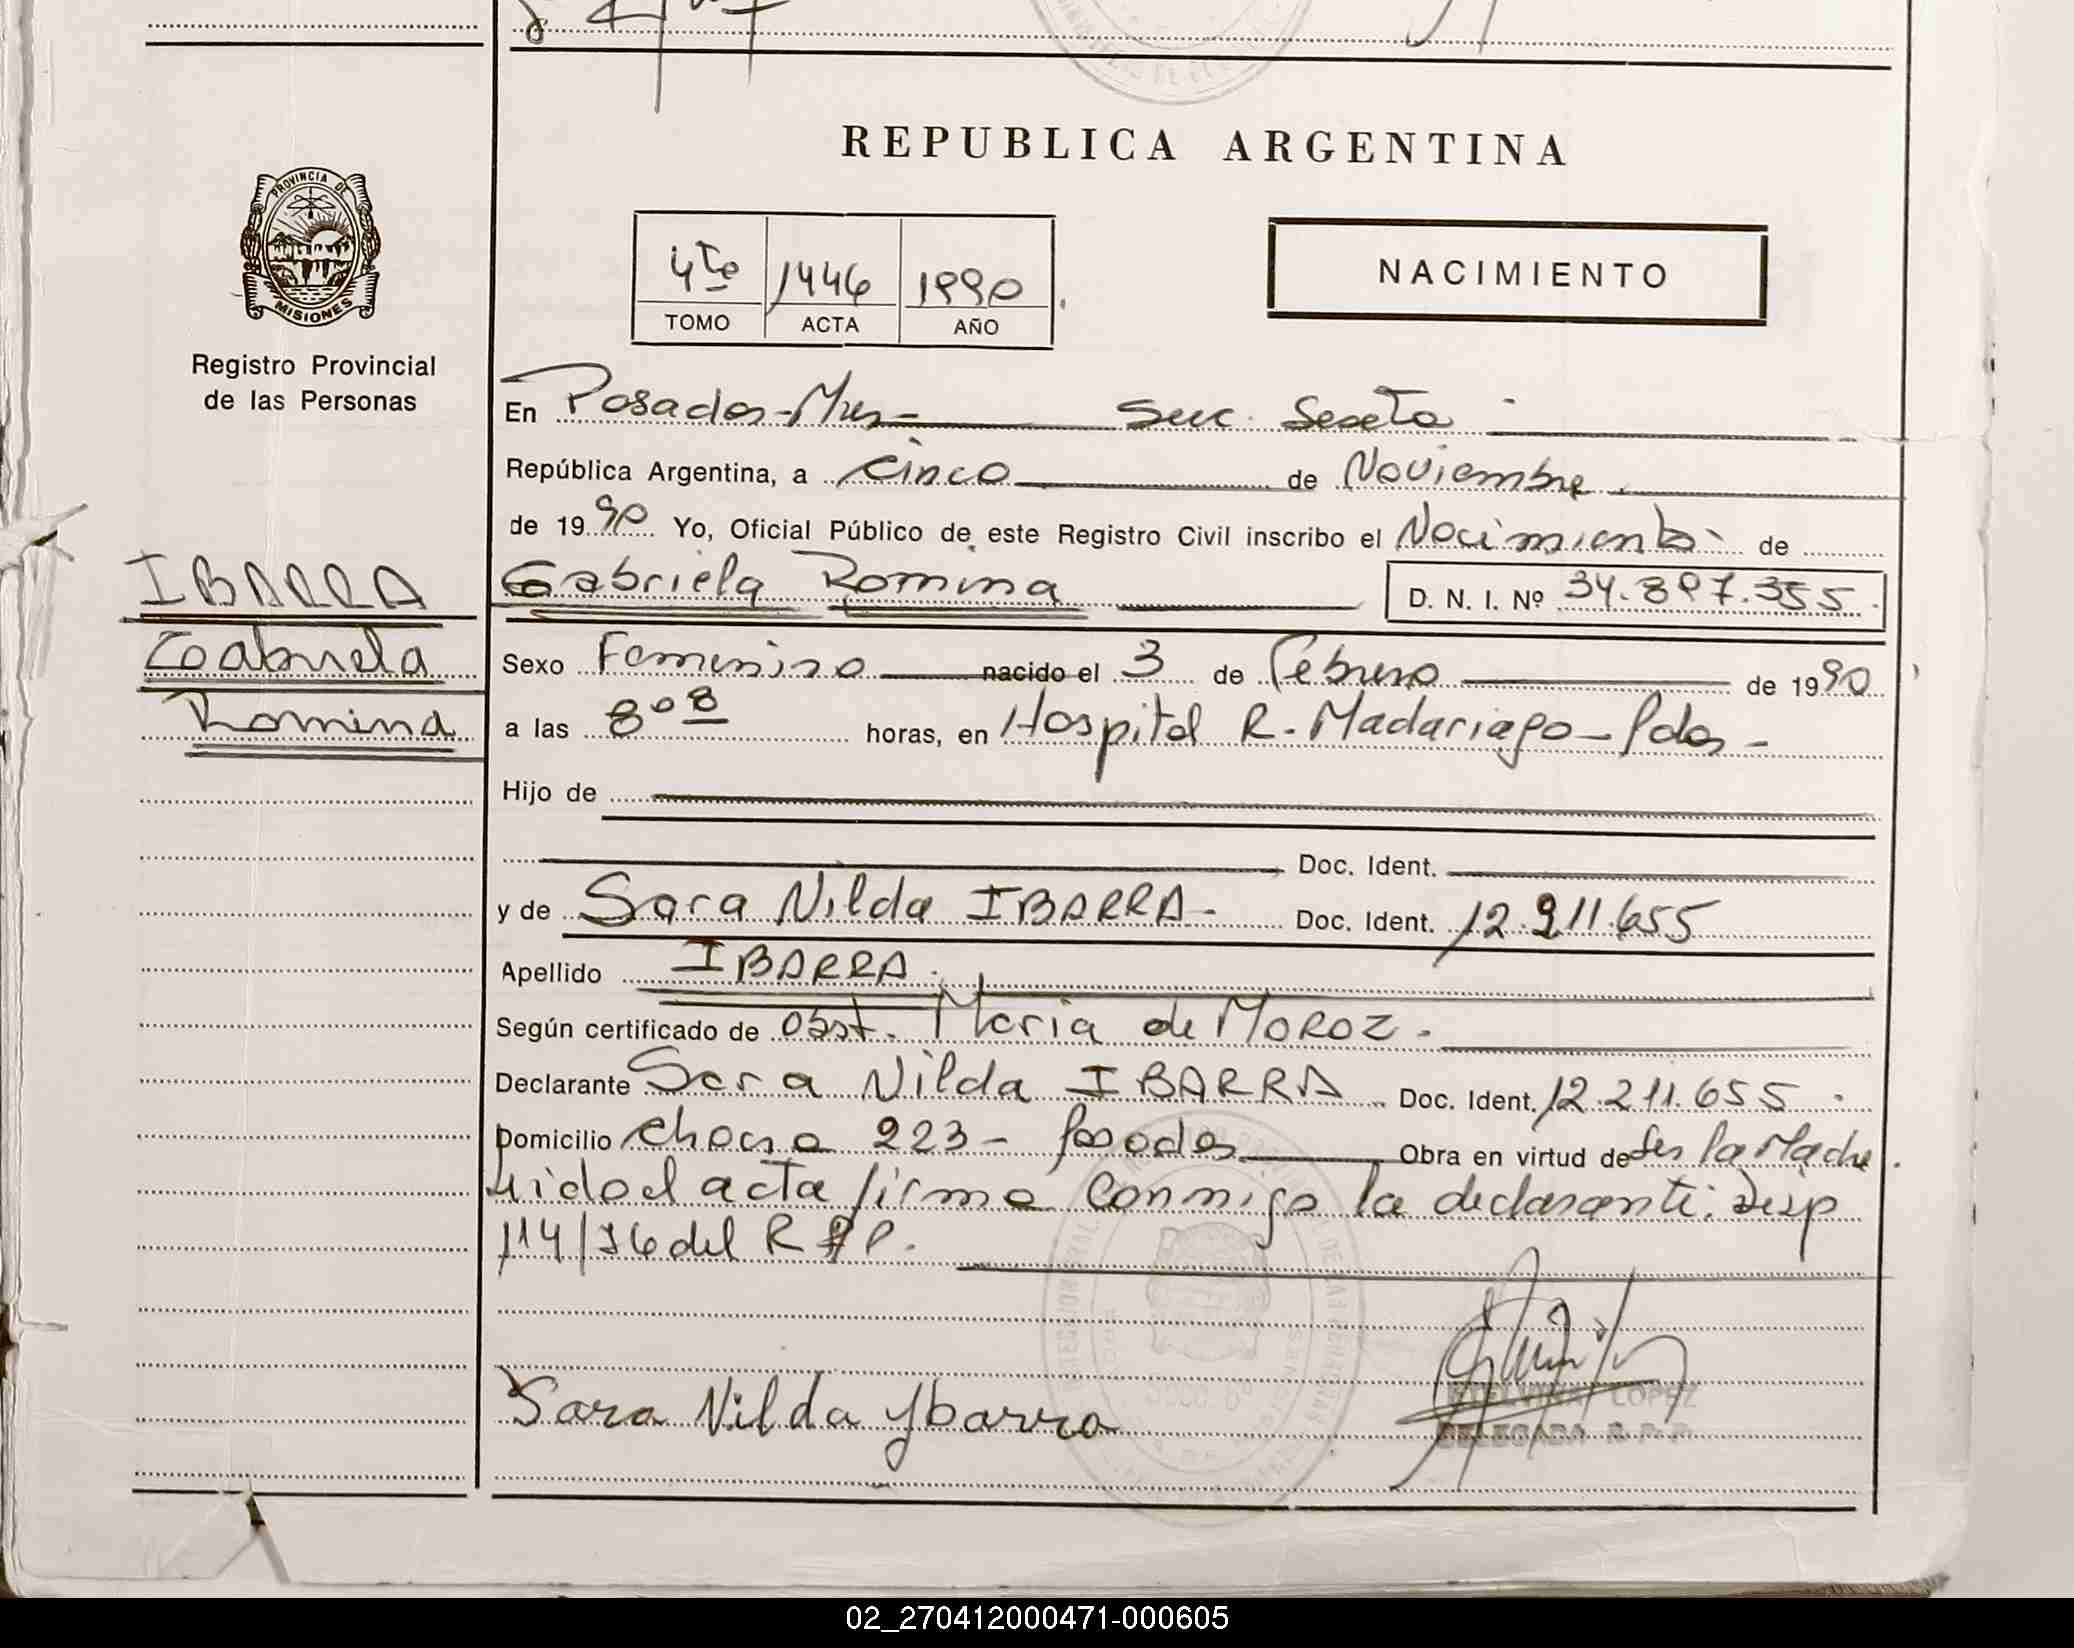 REPUBLICA ARGENTINA
PROVINCIA DE
MISIONES
Registro Provincial
de las Personas
4to 1446 1990
TOMO ACTA AÑO
NACIMIENTO
En Posadas-Mnes- Secc. Sexta
República Argentina, a cinco de Noviembre
de 1990 Yo, Oficial Público de este Registro Civil inscribo el Nacimiento de
IBARRA
Gabriela
Romina
Gabriela Romina D. N. I. Nº 34.897.355
Sexo Femenino nacido el 3 de Febrero de 1990
a las 8 horas, en Hospital R. Madariaga-Pdas-
Hijo de
Doc. Ident.
y de Sara Nilda IBARRA- Doc. Ident. 12.211.655
Apellido IBARRA.
Según certificado de Obst. Maria de MOROZ.
Declarante Sara Nilda IBARRA Doc. Ident. 12.211.655
Domicilio Chacra 223- Posadas Obra en virtud de ser la Madre.
Leida el acta firma conmigo la declarante. Disp
114/76 del R P P.
Sara Nilda Ybarra
ETELVINA LOPEZ
DELEGADA R.P.P.
02_270412000471-000605